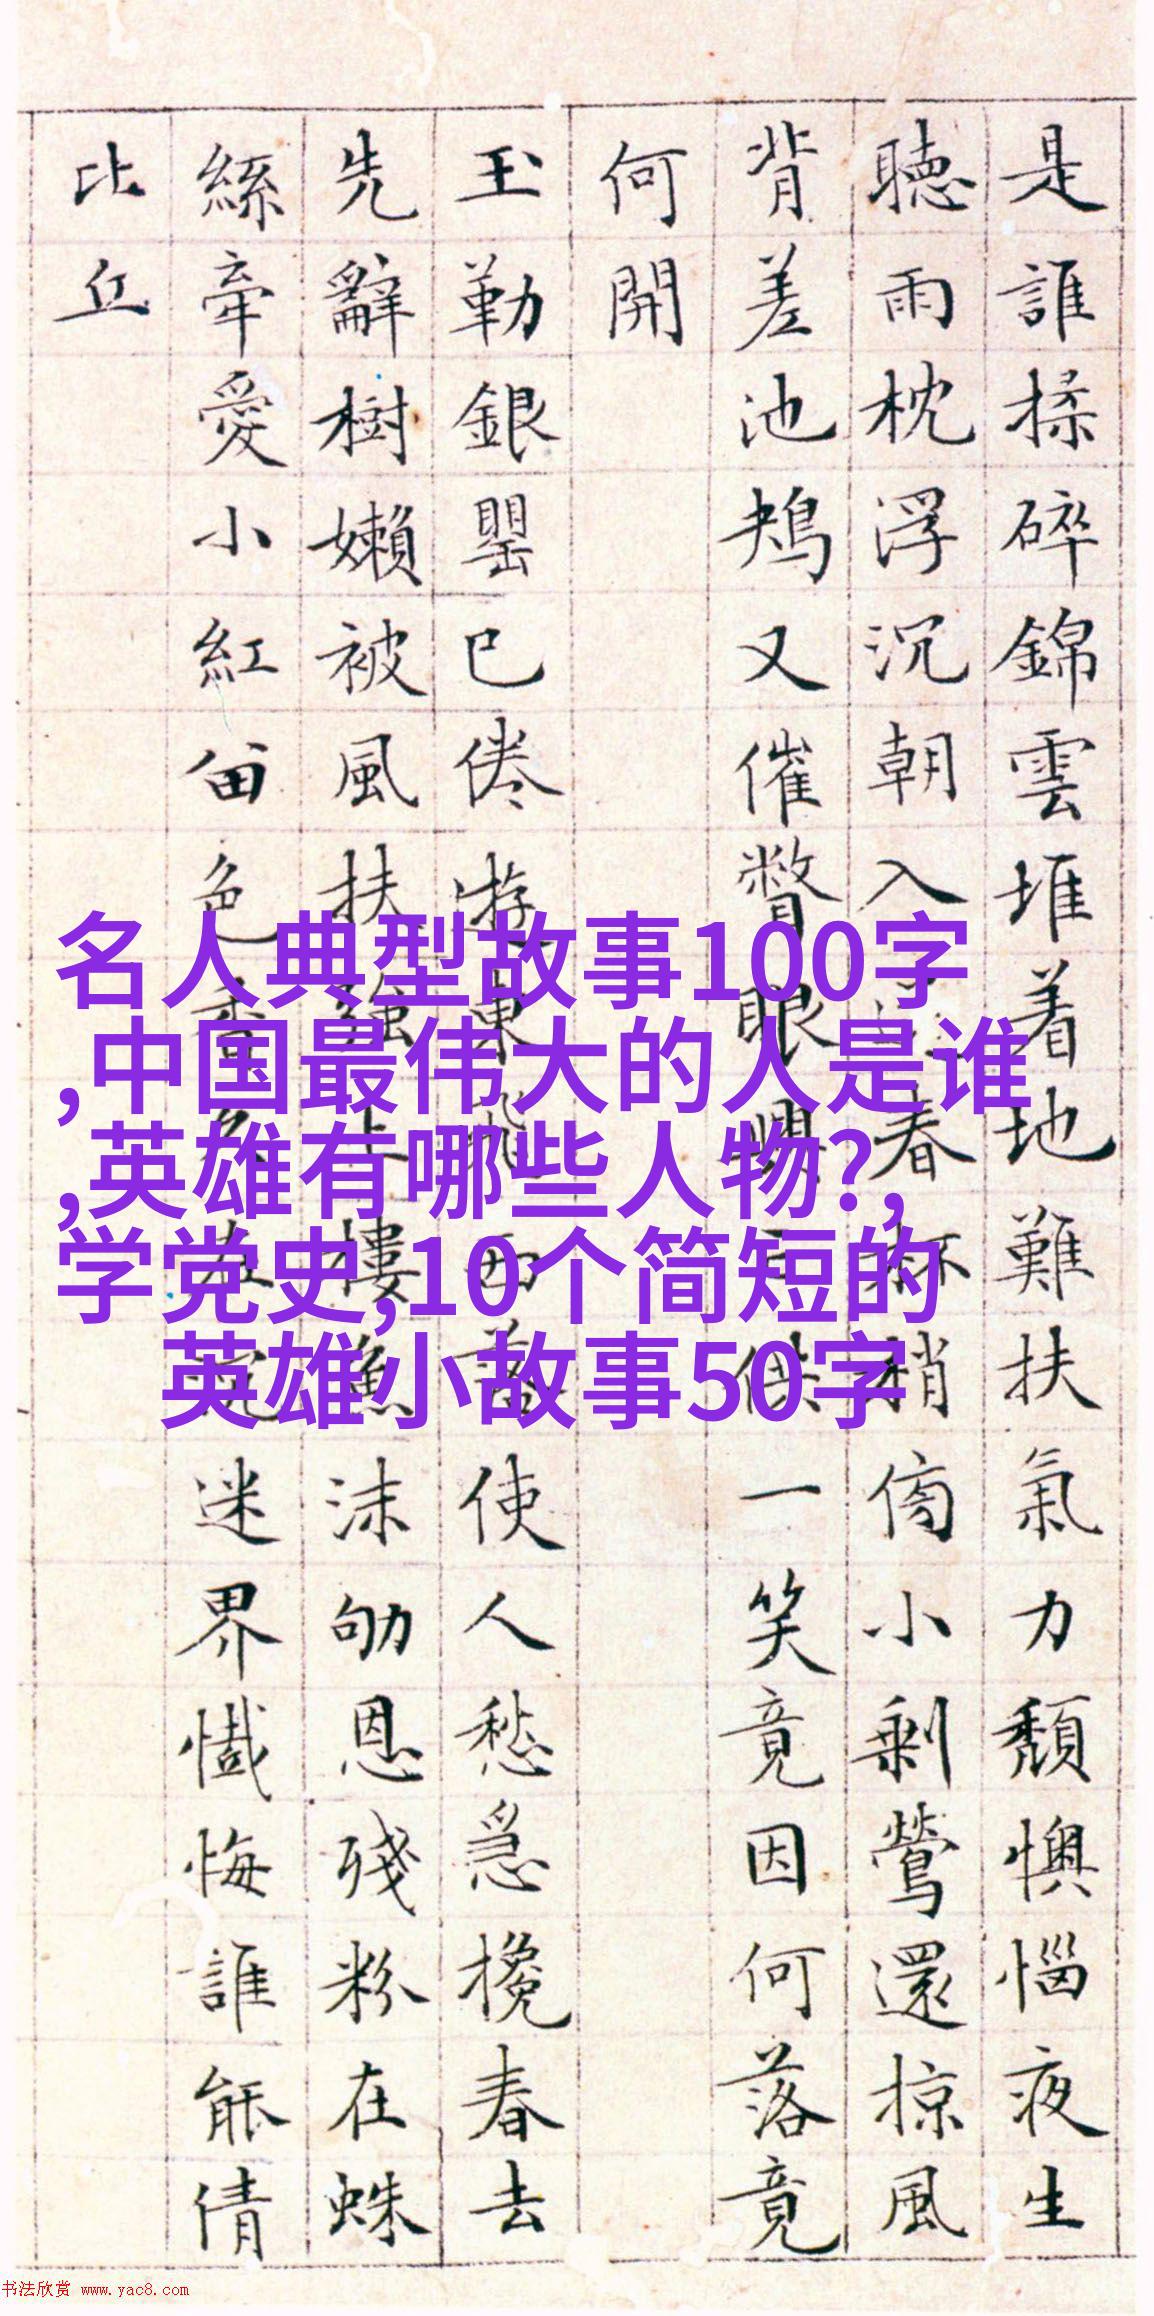 是誰揉碎錦雲堆着地難扶氣力頹懊惱夜生
聽雨枕浮沉朝入春杯小剩鶯還掠風
背差池鴂又催瞥眼供一笑竟因何落竟
何開
玉勒銀罌已倦遊東飛西落使人愁急攙春去
先辭樹嬾被風扶強上樓魚沫劬恩殘粉在蛛
絲牽愛小紅留色香久在迷界懺悔誰能倩
比丘
名人典型故事100字
,中国最伟大的人是谁
,英雄有哪些人物?,
学党史,10个简短的
英雄小故事50字
书法欣赏 www.yac8.com